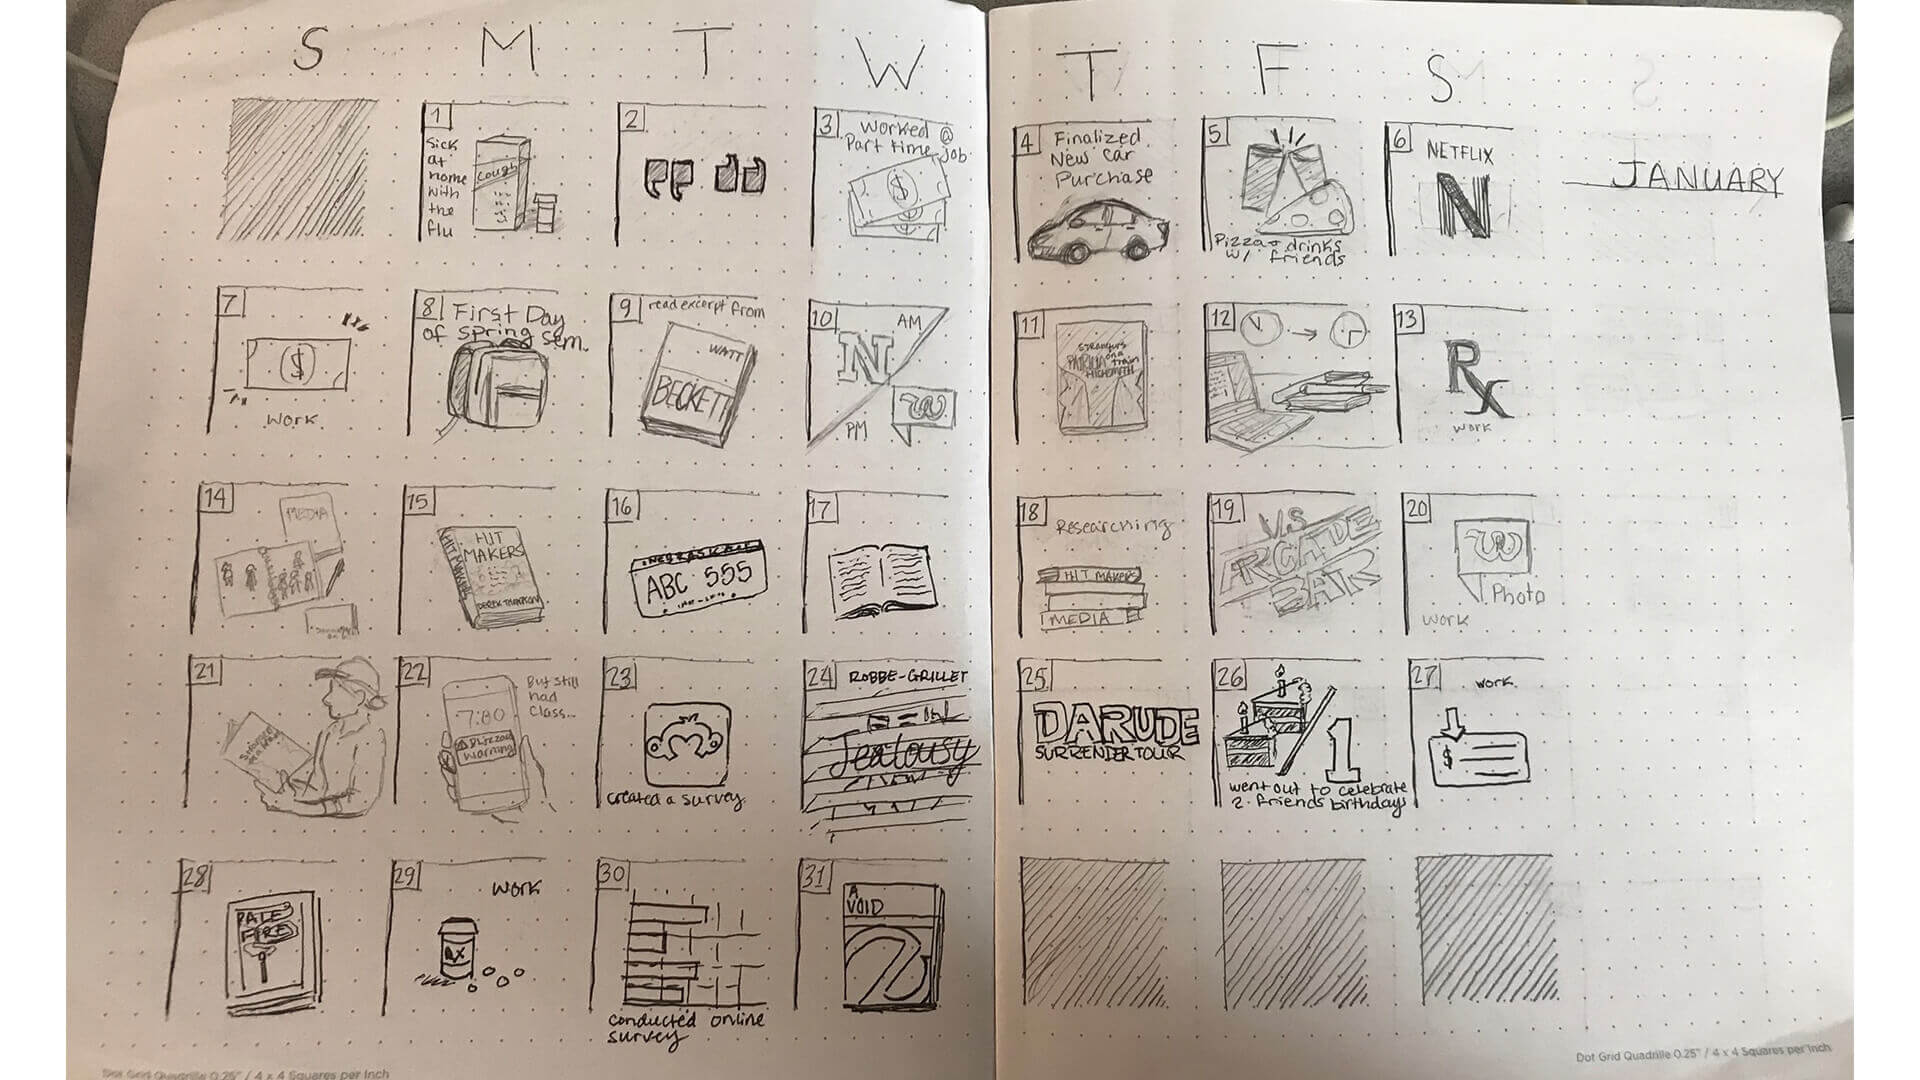 S M T W T F S
JANUARY
1
Sick
at
home
with
the
flu
Cough
2
3
Worked @
Part time job
$
4
Finalized
New Car
Purchase
5
Pizza + drinks
w/ friends
6
NETFLIX
N
7
$
Work
8
First Day
of Spring Sem.
9
read excerpt from
WATT
BECKETT
10
AM
N
W
PM
11
Strangers
on a
train
PATRICIA
HIGHSMITH
12
13
Rx
work
14
MEDIA
15
HIT MAKERS
HIT
MAKERS
DEREK THOMPSON
16
NEBRASKA
ABC 555
17
18
Researching
HIT MAKERS
MEDIA
19
V.S
ARCADE
BAR
20
W
Photo
work
21
22
But still
had
class...
7:00
Blizzard
Warning
23
created a survey
24
ROBBE-GRILLET
Jealousy
25
DARUDE
SURRENDER TOUR
26
1
went out to celebrate
2 friends birthdays
27
work
$
28
PALE
FIRE
29
work
RX
30
conducted online
survey
31
A
VOID
Dot Grid Quadrille 0.25" / 4 x 4 Squares per Inch
Dot Grid Quadrille 0.25" / 4 x 4 Squares per Inch